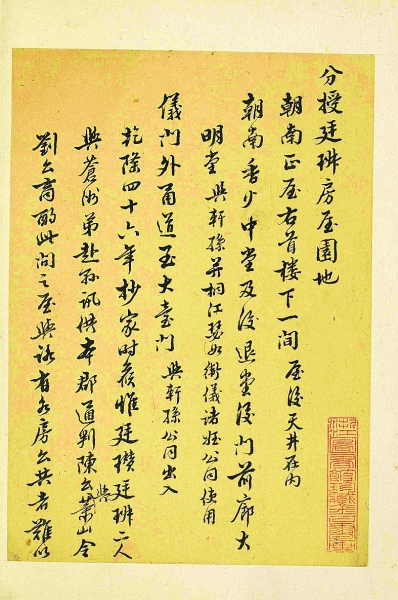 分授廷耕房屋園地
朝南正屋右首楼下一間 屋後天井在内
朝南香火中堂及後退堂後門前廊大
明堂 與軒孫并桐江瑟如衛儀諸姪公同使用
儀門外甬道至大臺門 與軒孫公同出入
乾隆四十六年抄家時候惟廷瓚廷耕二人
與蒼洲弟赴孫訊供本郡通判陳公與蕭山令
劉公商酌此間之屋與諸有各房公共者難以